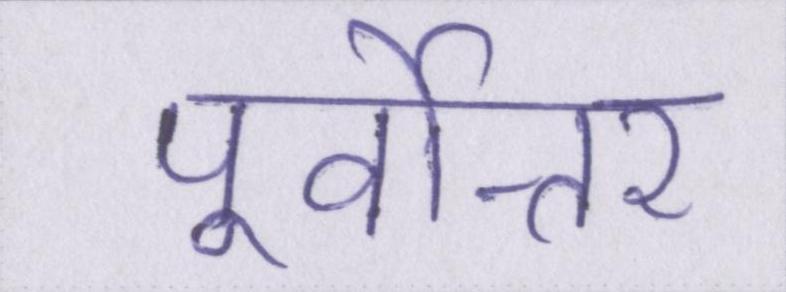 पूर्वोत्तर